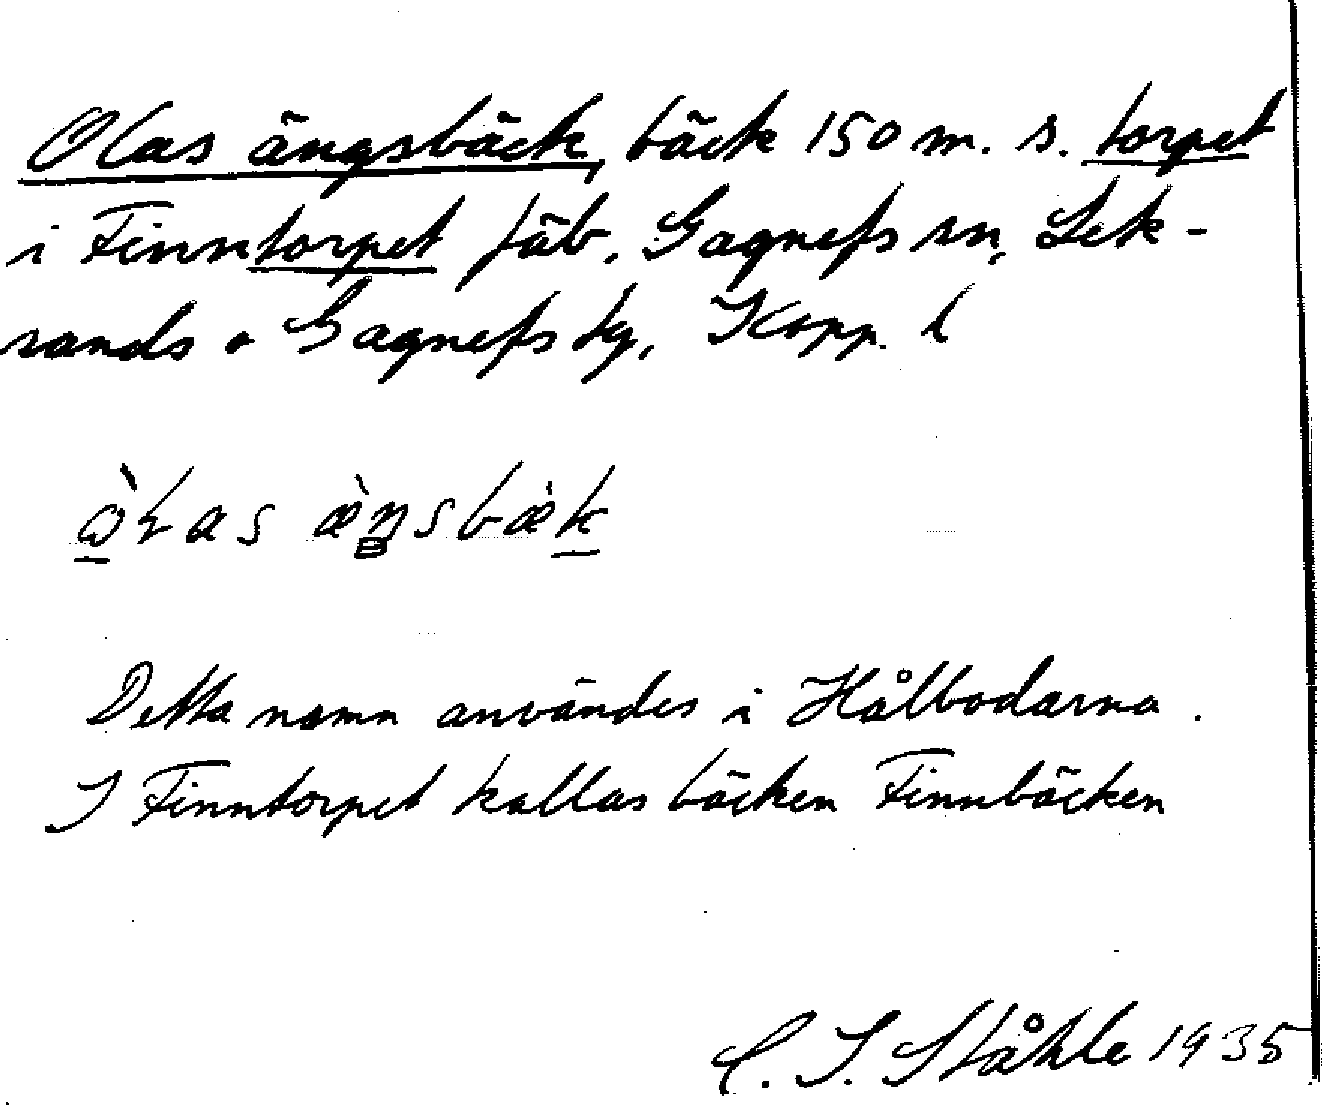 Olas ängsbäck, bäck 150 m. s. torpet
i Finntorpet fäb. Gagnefs sn, Lek-
sands o Gagnefs tg, Kopp. l
Detta namn användes i Hålbodarna.
I Finntorpet kallas bäcken Finnbäcken
C. I. Ståhle 1935